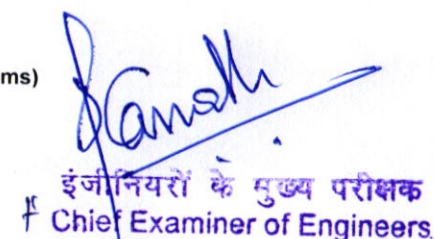 ms)
इंजीनियरों के मुख्य परीक्षक
Chief Examiner of Engineers